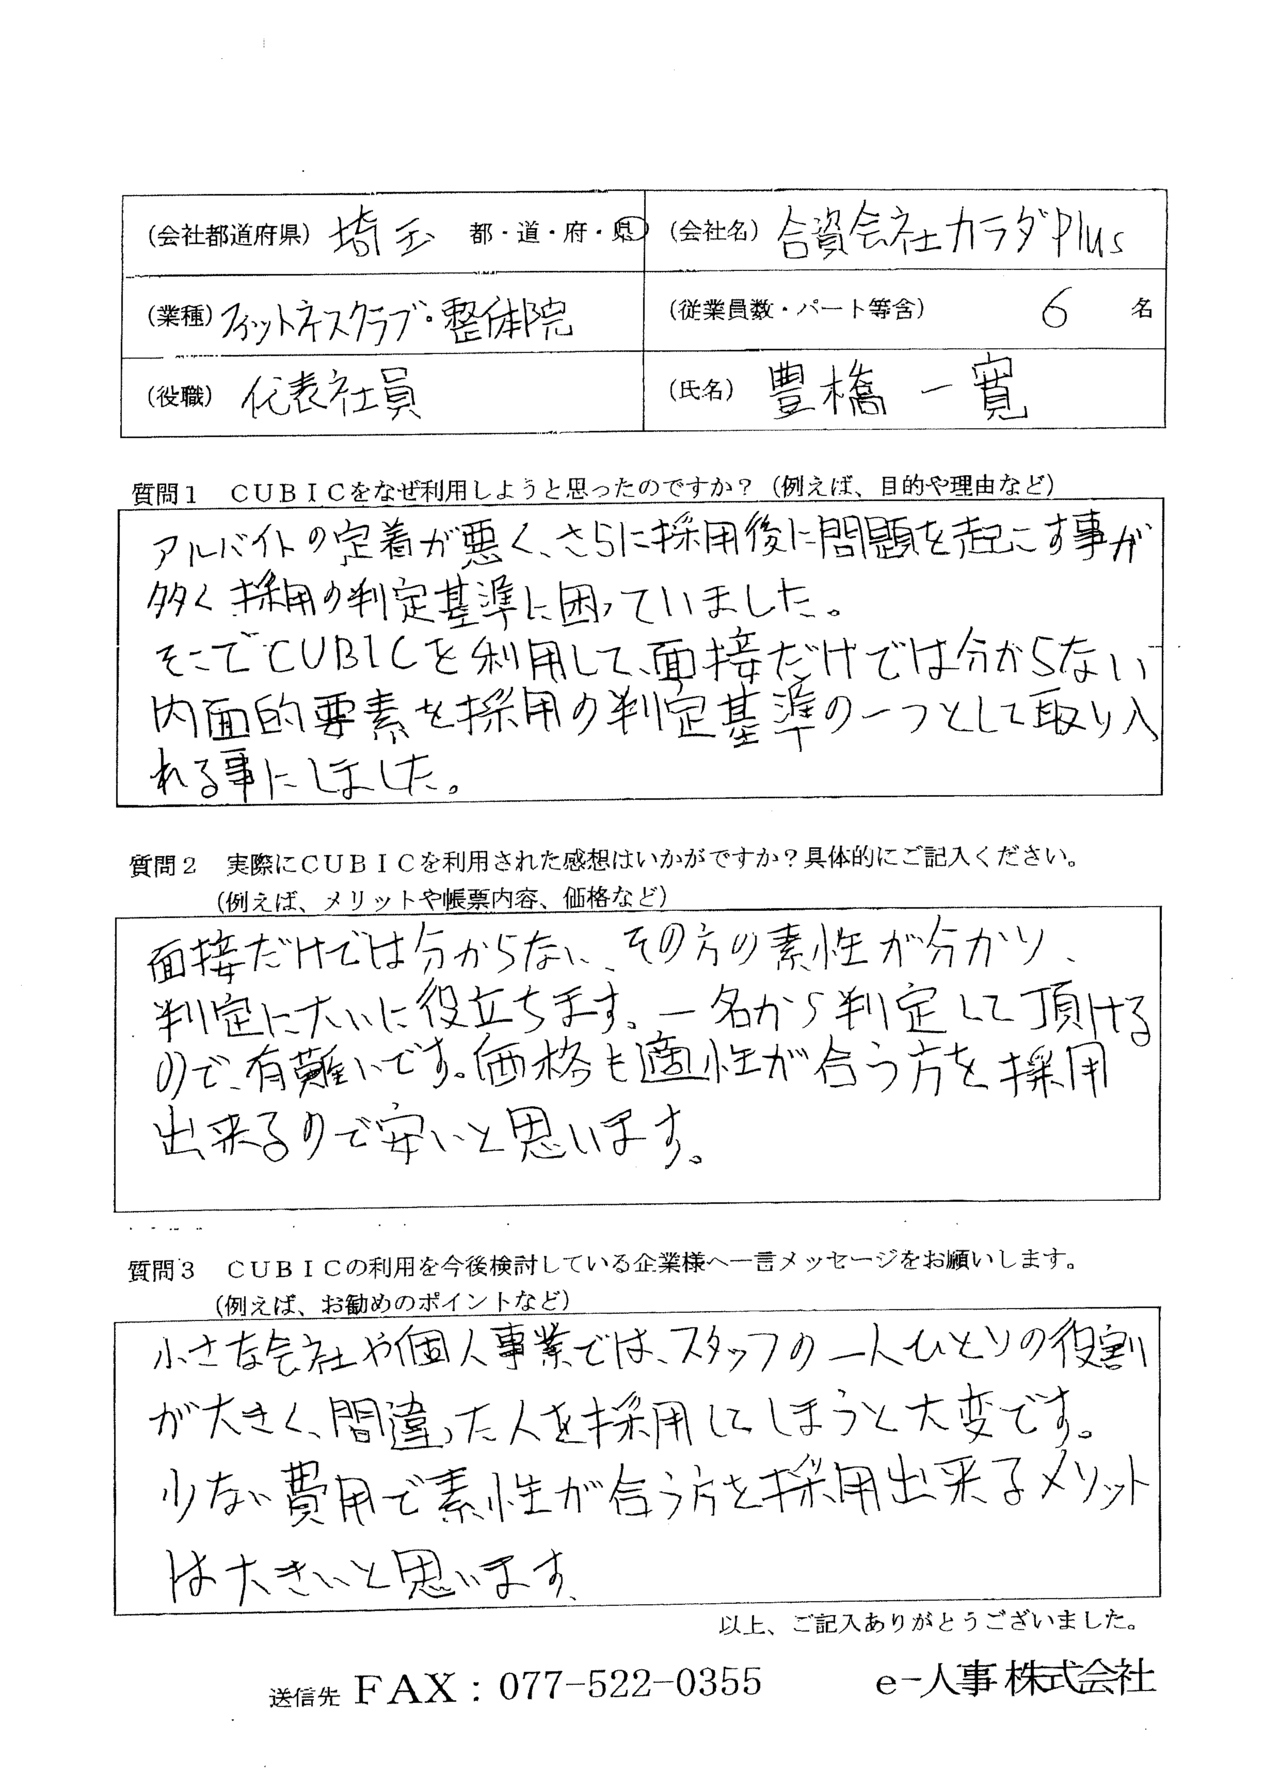 (会社都道府県) 埼玉 都・道・府・県 (会社名) 合資会社カラダPlus
(業種) フィットネスクラブ・整体院 (従業員数・パート等含) 6 名
(役職) 代表社員 (氏名) 豊橋 一寛
質問1 CUBICをなぜ利用しようと思ったのですか?(例えば、目的や理由など)
アルバイトの定着が悪く、さらに採用後に問題を起こす事が
多く採用の判定基準に困っていました。
そこでCUBICを利用して、面接だけでは分からない
内面的要素を採用の判定基準の一つとして取り入
れる事にしました。
質問2 実際にCUBICを利用された感想はいかがですか?具体的にご記入ください。
(例えば、メリットや帳票内容、価格など)
面接だけでは分からない、その方の素性が分かり、
判定に大いに役立ちます。一名から判定して頂ける
ので、有難いです。価格も適性が合う方を採用
出来るので安いと思います。
質問3 CUBICの利用を今後検討している企業様へ一言メッセージをお願いします。
(例えば、お勧めのポイントなど)
小さな会社や個人事業では、スタッフの一人ひとりの役割
が大きく、間違った人を採用してしまうと大変です。
少ない費用で素性が合う方を採用出来るメリット
は大きいと思います。
以上、ご記入ありがとうございました。
送信先 FAX:077-522-0355 e-人事株式会社